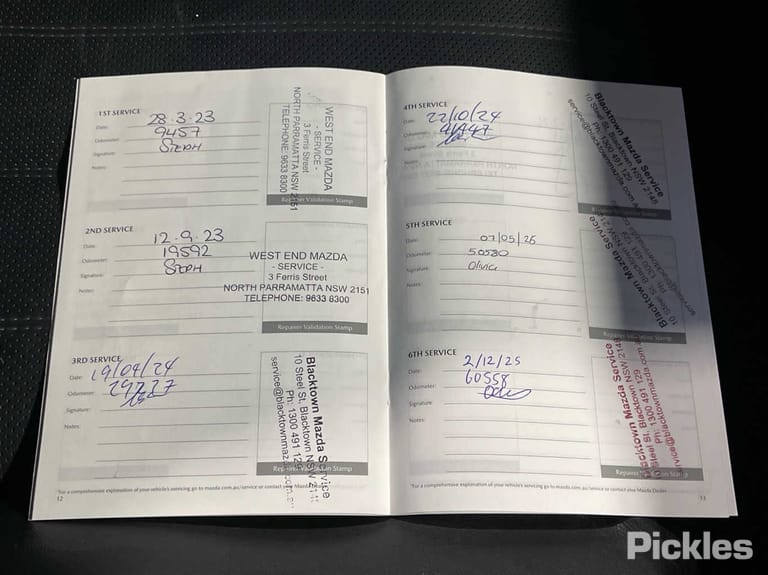 1ST SERVICE
Date: 28.3.23
Odometer: 9457
Signature: STEPH
Notes:
WEST END MAZDA
- SERVICE -
3 Ferris Street
NORTH PARRAMATTA NSW 2151
TELEPHONE: 9633 8300
Repairer Validation Stamp
2ND SERVICE
Date: 12.9.23
Odometer: 19592
Signature: STEPH
Notes:
WEST END MAZDA
- SERVICE -
3 Ferris Street
NORTH PARRAMATTA NSW 2151
TELEPHONE: 9633 8300
Repairer Validation Stamp
3RD SERVICE
Date: 19/04/24
Odometer:
Signature:
Notes:
Blacktown Mazda Service
10 Steel St, Blacktown NSW 2148
Ph: 1300 491 129
Repairer Validation Stamp
*For a comprehensive explanation of your vehicle's servicing go to mazda.com.au/service or contact your Mazda
12
4TH SERVICE
Date: 22/10/24
Odometer:
Signature:
Notes:
Blacktown Mazda Service
10 Steel St, Blacktown NSW 2148
Ph: 1300 491 129
service@blacktownmazda.com.au
Repairer Validation Stamp
5TH SERVICE
Date: 07/05/25
Odometer: 50580
Signature: Olivia
Notes:
Blacktown Mazda Service
10 Steel St, Blacktown NSW
Ph: 1300 491 129
Repairer Validation Stamp
6TH SERVICE
Date: 2/12/25
Odometer: 60558
Signature:
Notes:
Blacktown Mazda Service
Steel St, Blacktown NSW 2148
Ph: 1300 491 129
Repairer Validation Stamp
*For a comprehensive explanation of your vehicle's servicing go to mazda.com.au/service or contact your Mazda Dealer
13
Pickles